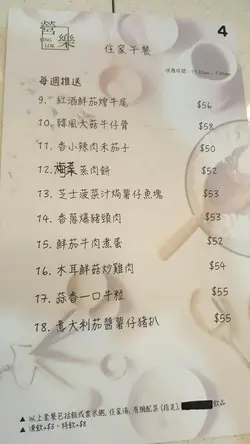 營樂
YING LOK
4
住家午餐
每週推送
9. 紅酒鮮茄燴牛尾 $56
10. 韓風大菇牛仔骨 $58
11. 香小辣肉末茄子 $50
12. 梅菜蒸肉餅 $52
13. 芝士菠菜汁焗薯仔魚塊 $53
14. 香蔥爆豬頸肉 $53
15. 鮮茄牛肉煮蛋 $52
16. 木耳鮮菇炒雞肉 $54
17. 蒜香一口牛粒 $55
18. 意大利茄醬薯仔豬扒 $55
▲ 以上套餐包括飯或粟米粥, 住家湯, 有機配菜(指定), 飲品
▲ 凍飲+$3、特飲+$8